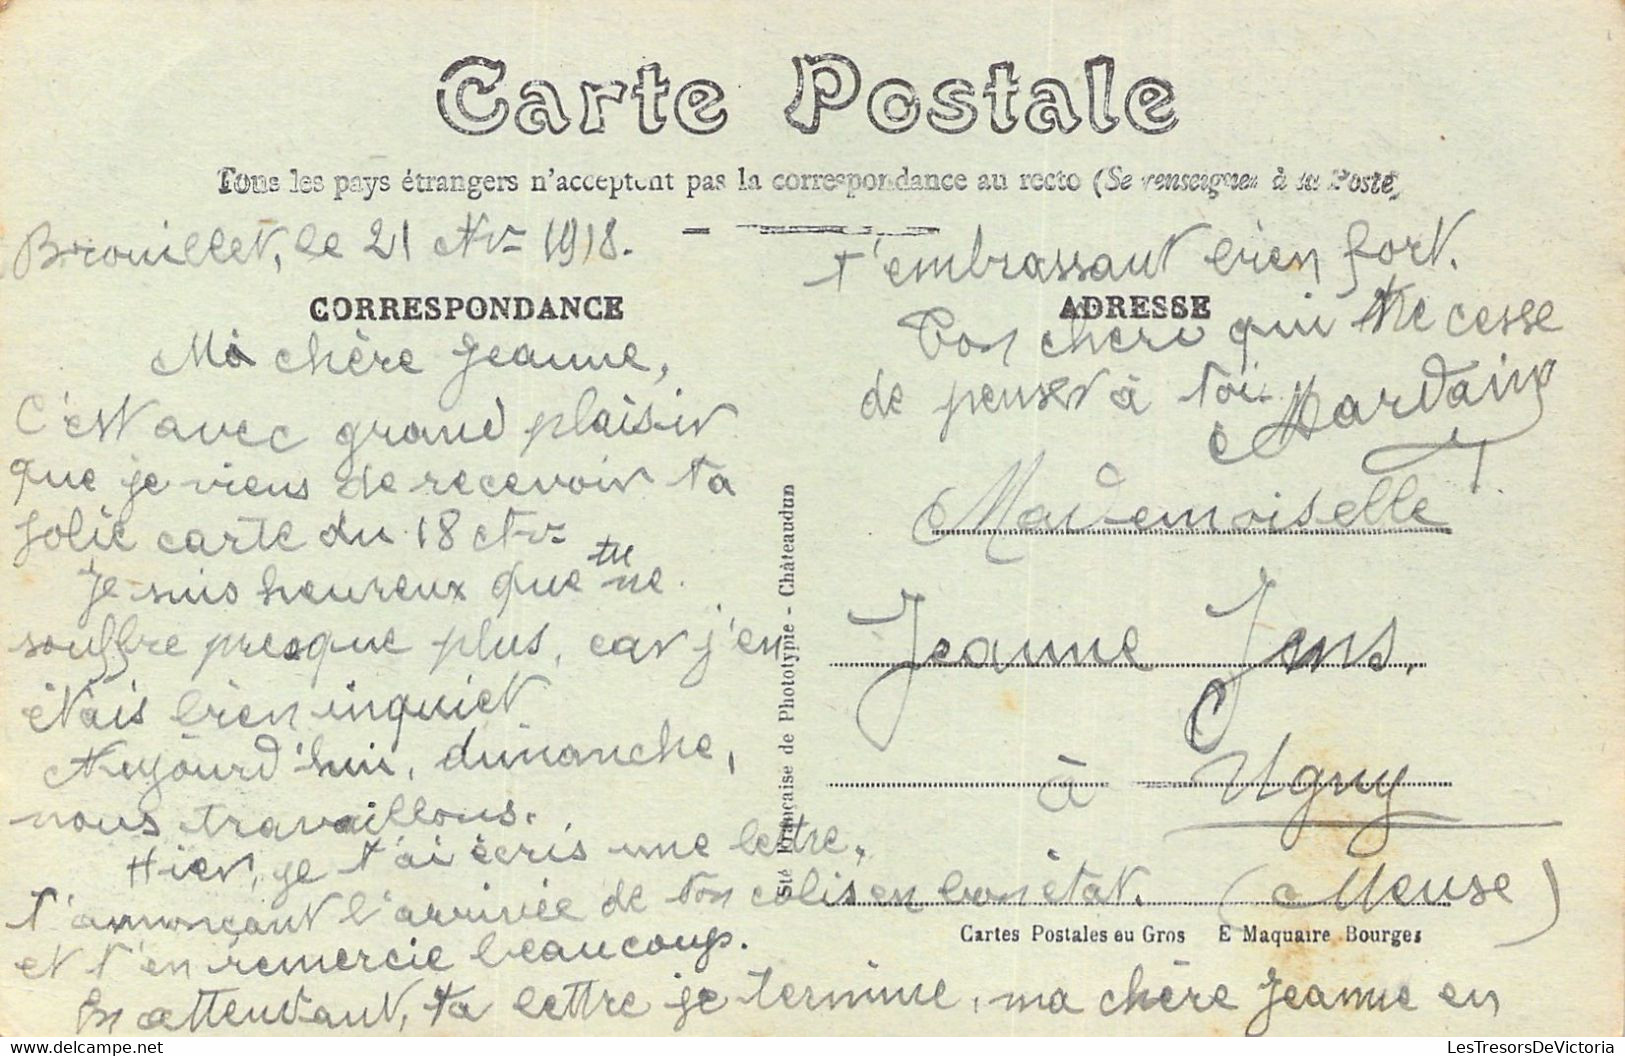 Carte Postale
Tous les pays étrangers n'acceptent pas la correspondance au recto (Se renseigner à la Poste)
Brouillet, le 21 1918.
CORRESPONDANCE
Ma chère Jeanne,
C'est avec grand plaisir
que je viens de recevoir ta
jolie carte du 18
Je suis heureux que tu ne
souffre presque plus, car j'en
étais bien inquiet
Aujourd'hui, dimanche,
nous travaillons.
Hier, je t'ai écris une lettre,
t'annonçant l'arrivée de ton colis en bon état.
et t'en remercie beaucoup.
En attendant, ta lettre je termine, ma chère Jeanne en
t'embrassant bien fort.
Ton chéri qui ne cesse
de penser à toi.
ADRESSE
Mademoiselle
Jeanne Jens,
à Ugny
(Meuse)
Sté Française de Phototypie - Châteaudun
Cartes Postales en Gros E Maquaire Bourges
LesTresorsDeVictoria
LesTresorsDeVictoria.com